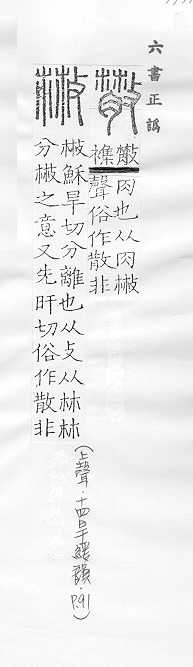 六書正譌
𢿱襍
肉也从肉㪔
聲俗作散非
㪔穌旱切分離也从攴从𣏟𣏟
分㪔之意又先旰切俗作散非
(上聲·十四旱緩韻,P.91)